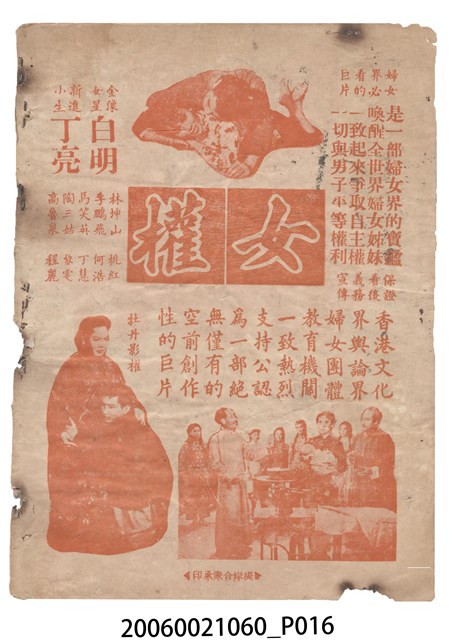 婦女
界必
看的
巨片
是一部婦女界的寶鑑
喚醒全世界婦女姊妹
一致起來爭取自主權
一切與男子平等權利
保證
看後
義務
宣傳
金像
女星
白明
新進
小生
丁亮
林坤山
李鵬飛
馬笑英
陶三姑
高魯泉
桃紅
何浩
丁慧
黎雯
程麗
女權
香港文化
界輿論界
婦女團體
教育機關
一致熱烈
支持公認
為一部絕
無僅有的
空前創作
性的巨片
牡丹影推
橫岸合眾承印
20060021060_P016